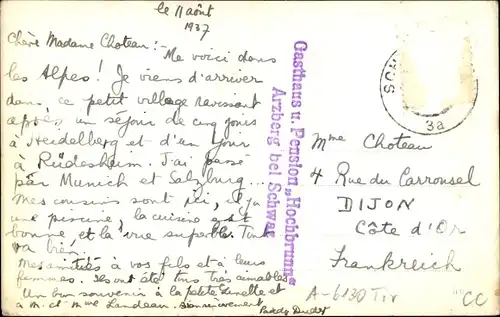 le 11 août
1937
Chère Madame Choteau! -
Me voici dans
les Alpes! Je viens d'arriver
dans ce petit village ravissant
après un séjour de cinq jours
à Heidelberg et d'un jour
à Rüdesheim. J'ai passé
par Munich et Salzburg...
mes cousins sont ici, il y a
une piscine, la cuisine est
bonne et la vue superbe. Tout
va bien.
Mes amitiés à vos fils et à leurs
femmes. Ils ont été tous très aimables
Un bon souvenir à la petite
à M. et Mme Landeau. Bien sincèrement
Gasthaus u. Pension „Hochbrunn"
Arzberg bei Schwaz
SCH
3a
Mme Choteau
4 Rue du Carrousel
DIJON
Côte d'Or
Frankreich
A-6130 Tir
CC